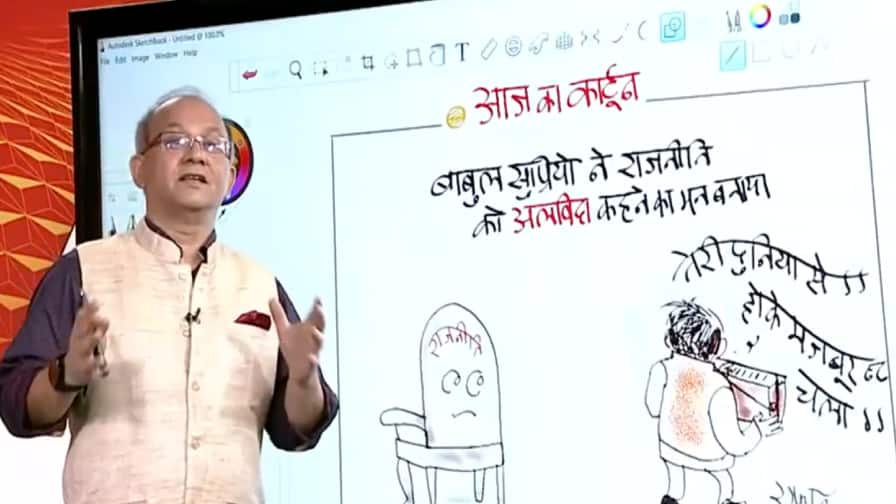 Autodesk SketchBook - Untitled @ 100.0%
File Edit Image Window Help
T
आज का कार्टून
बाबुल सुप्रियो ने राजनीति
को अलविदा कहने का मन बनाया
तेरी दुनिया से
होके मजबूर
चला
राजनीति